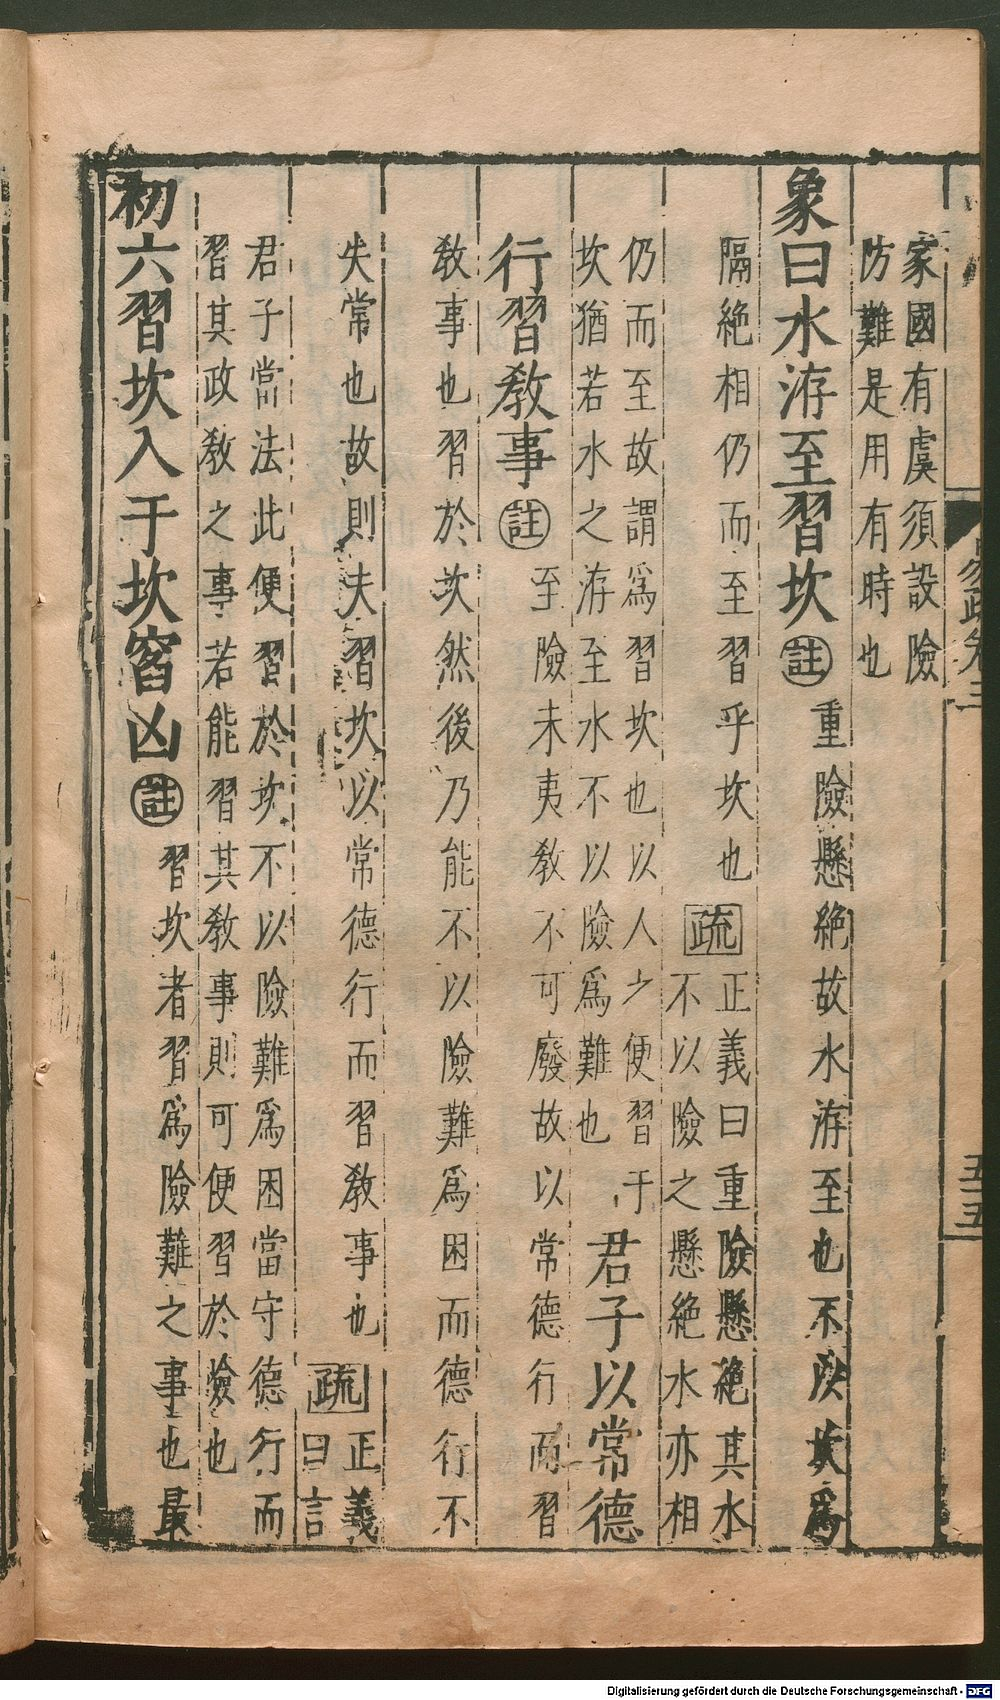 家國有虞須設險
防難是用有時也
象曰水洊至習坎㊟重險懸絶故水洊至也不以坎爲
隔絶相仍而至習乎坎也疏正義曰重險懸絶其水
不以險之懸絶水亦相
仍而至故謂爲習坎也以人之便習于
坎猶若水之洊至水不以險爲難也
君子以常德
行習敎事註至險未夷敎不可廢故以常德行而習
敎事也習於坎然後乃能不以險難爲困而德行不
失常也故則夫習坎以常德行而習敎事也疏正義
曰言
君子當法此便習於坎不以險難爲困當守德行而
習其政敎之事若能習其敎事則可便習於險也
初六習坎入于坎窞凶註習坎者習爲險難之事也最
五十五
Digitalisierung gefördert durch die Deutsche Forschungsgemeinschaft - DFG